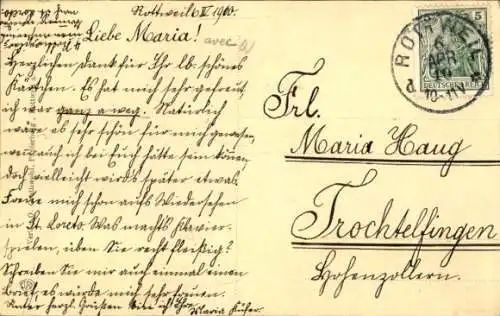 Rottweil 6 IV 1910.
Liebe Maria!
Herzlichen Dank für Ihr lb. schönes
Kärtchen. Es hat mich sehr gefreut
ich war ganz aweg. Natürlich
wäre es sehr schön für mich gewesen,
wenn auch ich bei Euch hätte sein können,
doch vielleicht wird's später etwas.
Freue mich schon aufs Wiedersehen
in St. Loreto. Was macht's Klavier-
spielen, üben Sie recht fleißig?
Schreiben Sie mir auch einmal einen
Brief, es würde mich sehr freuen.
Unter herzl. Grüßen bin ich Ihre
Maria
ROTTWEIL
APR
10-11V
5
DEUTSCHES REICH
Frl.
Maria Haug
Trochtelfingen
Hohenzollern.